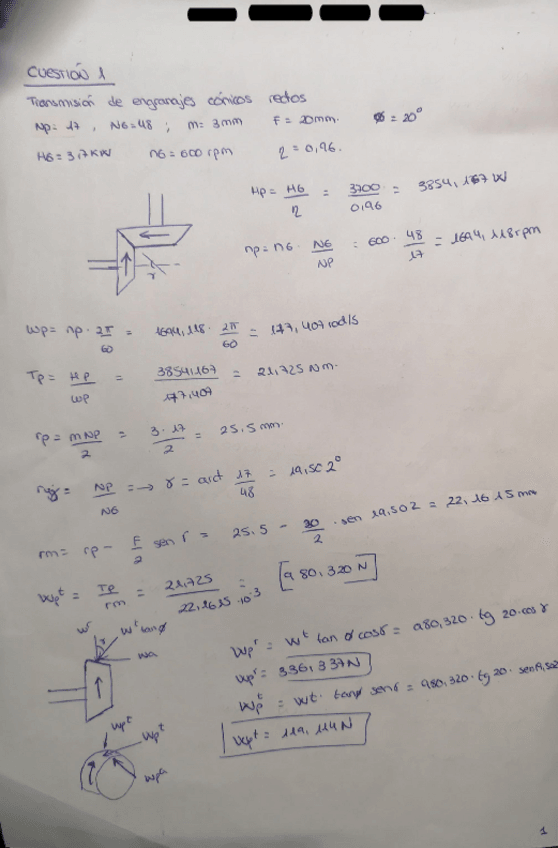 CUESTIÓN 1
Transmisión de engranajes cónicos rectos
Np= 17 , NG=48 ; m= 3mm F= 20mm. φ= 20°
HG= 3,7KW nG= 600 rpm η= 0,96.
Hp= HG/η = 3700/0,96 = 3854,167 W
np= nG · NG/NP = 600 · 48/17 = 1694,118rpm
γ
ωp= np · 2π/60 = 1694,118 · 2π/60 = 177,407 rad/s
Tp= Hp/ωp = 3854,167/177,407 = 21,725 Nm.
rp= mNp/2 = 3·17/2 = 25.5 mm.
= Np/NG => γ = arct 17/48 = 19,502°
rm= rp - F/2 sen γ = 25.5 - 20/2 · sen 19,502 = 22,1615 mm
Wpt = Tp/rm = 21,725/22,1615·10-3 = 980,320 N
Wr Wt tanφ
γ
Wa
Wpr = Wt tan φ cosγ = 980,320· tg 20·cos γ
Wpr = 336,337N
Wpt = Wt· tanφ senγ = 980,320· tg 20· sen19,502
Wpt = 119,114N
Wpt
Wpt
Wpa
1